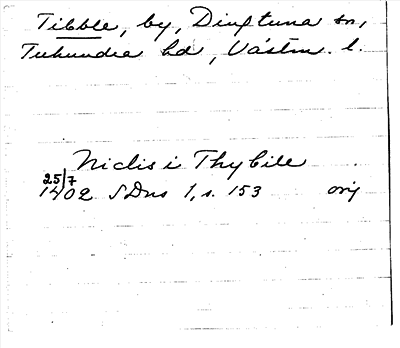 Tibble, by, Dingtuna sn,
Tuhundra hd, Västm. l.
Niclis i Thybile
25/7
1402 SDns 1, s. 153 orig